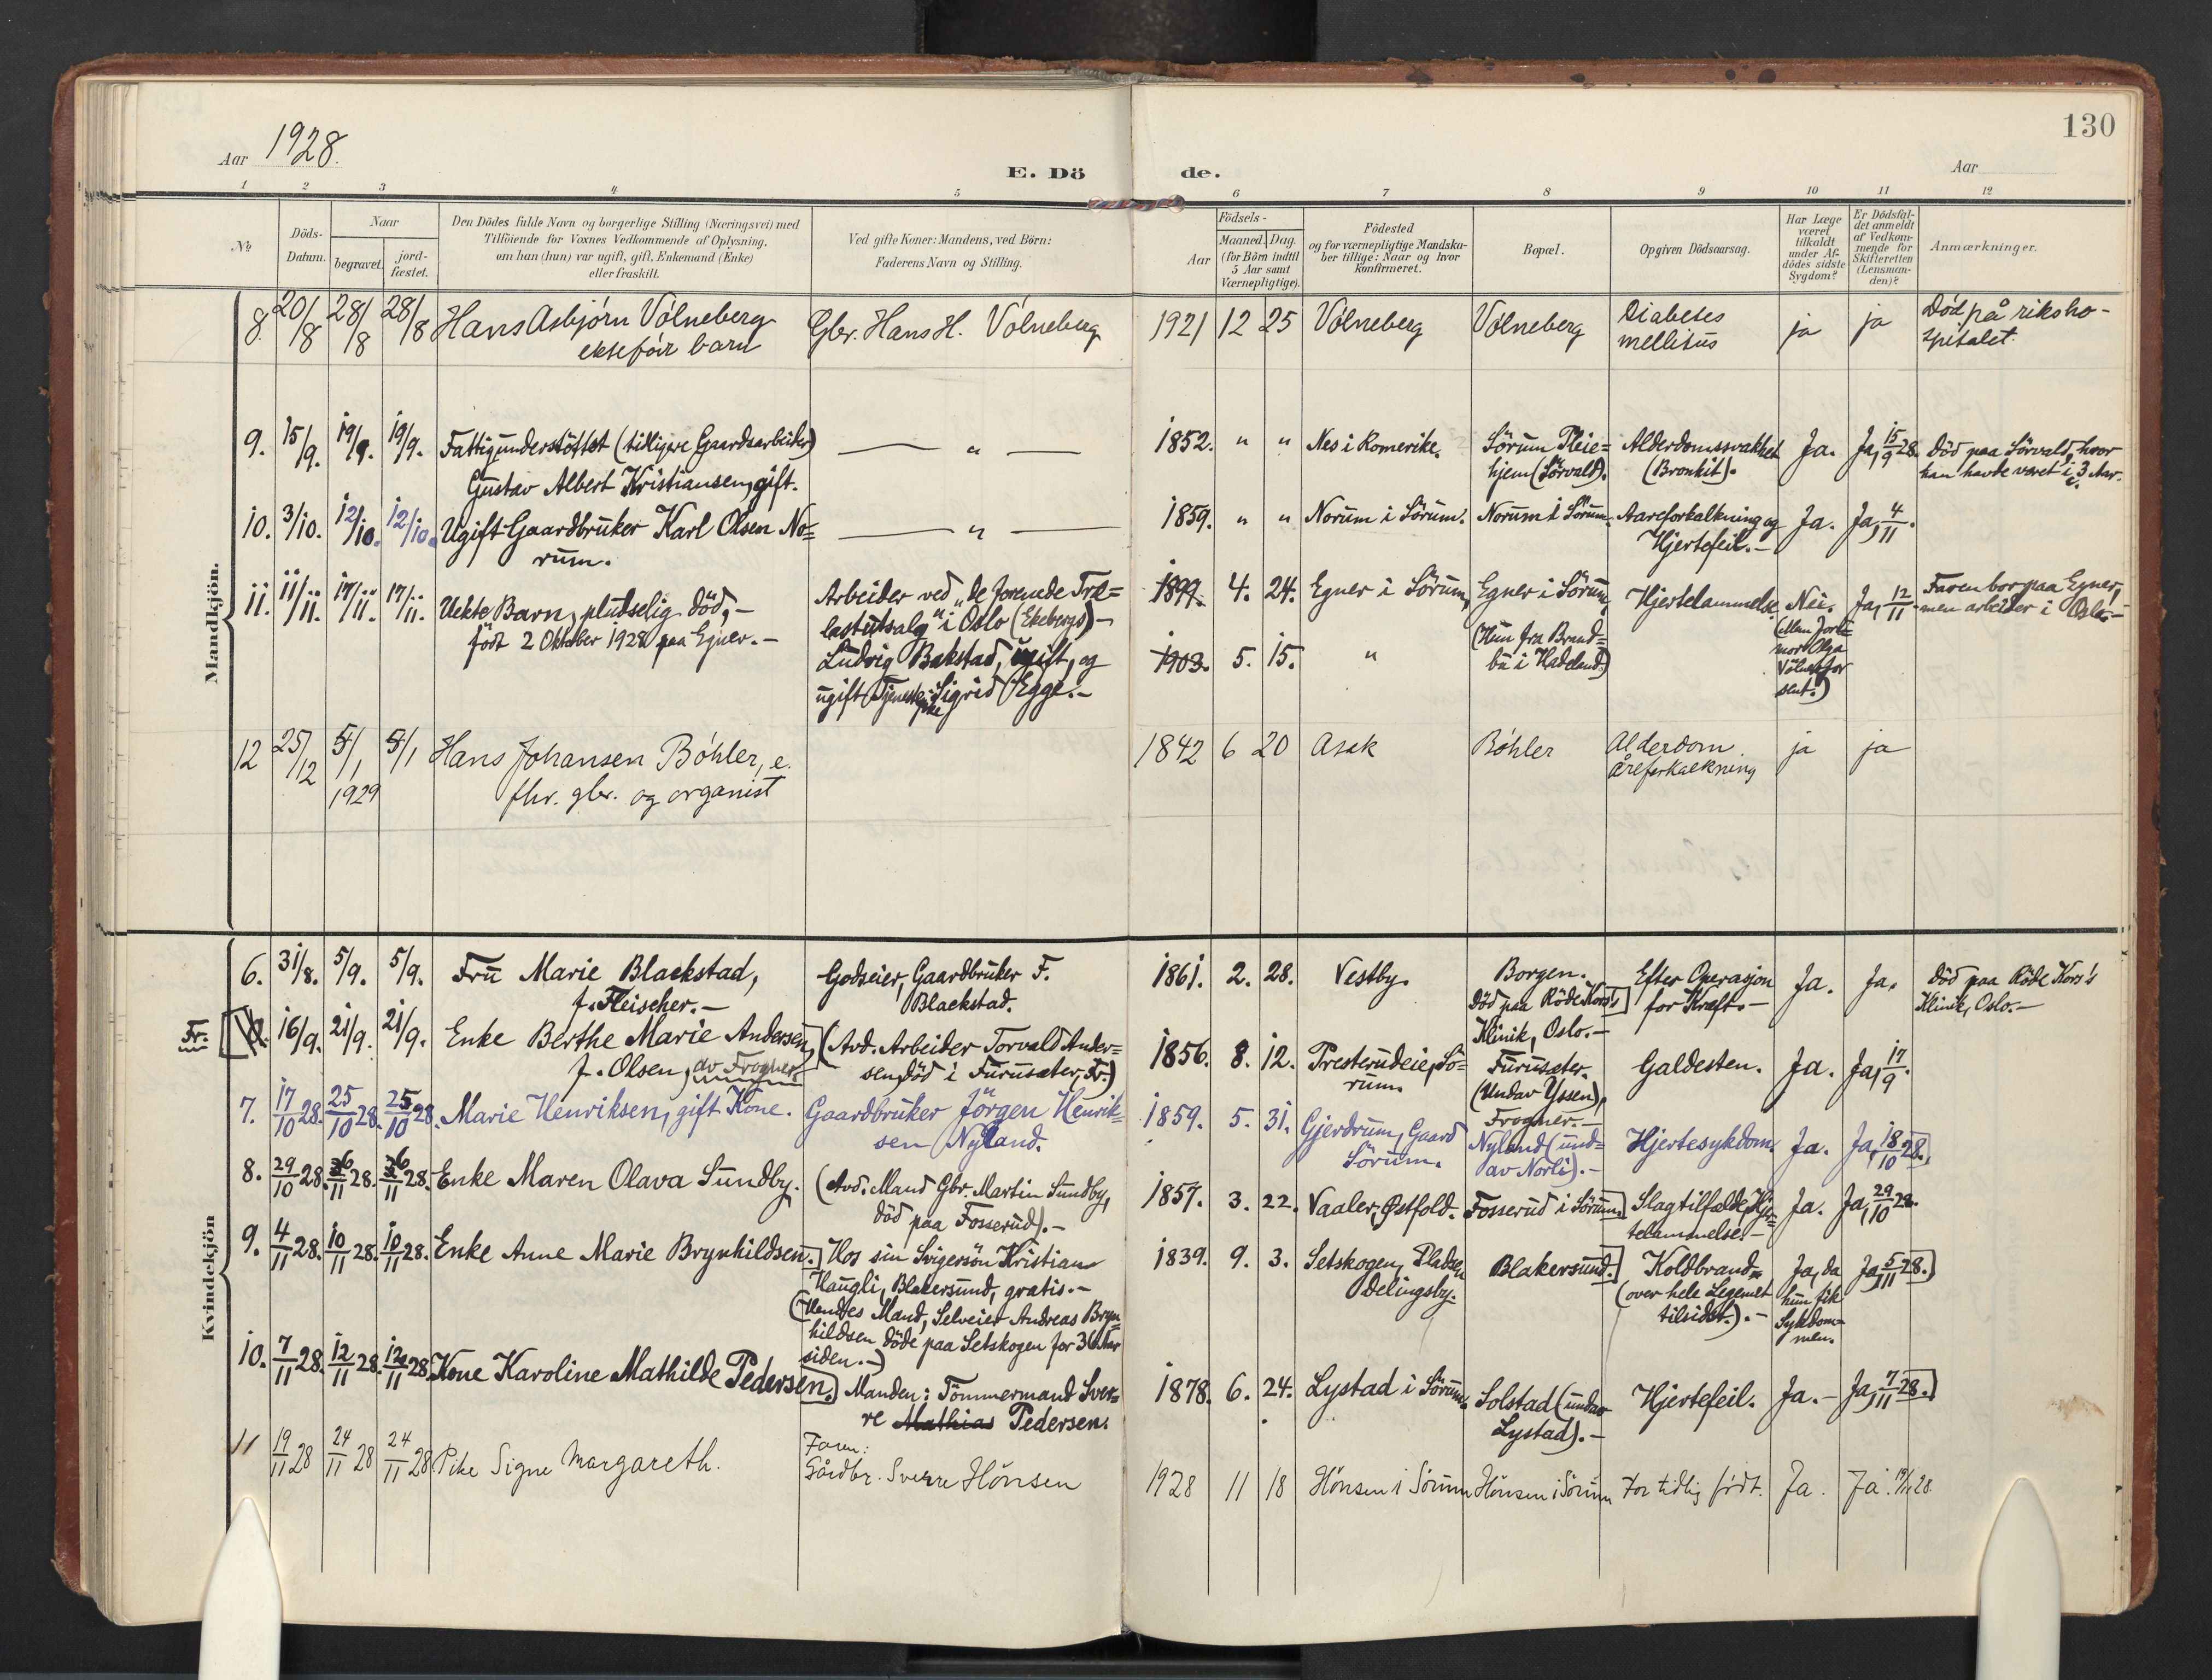 130
Aar 1928.
E. Dö de.
Aar
1 2 3 4 5 6 7 8 9 10 11 12
No
Döds-Datum.
Naar
begravet. jord-fæstet.
Den Dödes fulde Navn og borgerlige Stilling (Næringsvei) med
Tilföiende for Voxnes Vedkommende af Oplysning,
om han (hun) var ugift, gift, Enkemand (Enke)
eller fraskilt.
Ved gifte Koner: Mandens, ved Börn:
Faderens Navn og Stilling.
Födsels-
Aar
Maaned. Dag.
(for Börn indtil
5 Aar samt
Værnepligtige).
Födested
og for værnepligtige Mandska-
ber tillige: Naar og hvor
konfirmeret.
Bopæl.
Opgiven Dödsaarsag.
Har Læge
været
tilkaldt
under Af-
dödes sidste
Sygdom?
Er Dödsfal-
det anmeldt
af Vedkom-
mende for
Skifteretten
(Lensman-
den)?
Anmærkninger.
Mandkjön.
8. 20/8 28/8 28/8 Hans Asbjørn Völneberg
ektefött barn
Gbr. Hans H. Völneberg
1921 12 25 Völneberg
Völneberg
Diabetes
mellitus
ja
ja
Död på riksho-
spitalet.
9. 15/9. 19/9. 19/9. Fattigunderstöttet (tidligere Gaardsarbeider)
Gustav Albert Kristiansen, gift.
— " —
1852. " " Nes i Romerike.
Sörum Pleie=
hjem (Sörvald).
Alderdomssvakhet
(Bronkit).
Ja.
Ja, 15/9 28.
Död paa Sörvald, hvor
han havde været i 3 Aar.
10. 3/10. 12/10. 12/10. Ugift Gaardbruker Karl Olsen No=
rum.
— " —
1859. " " Norum i Sörum.
Norum i Sörum.
Aareforkalkning og
Hjertefeil.-
Ja.
Ja, 4/11.
11. 11/11. 17/11. 17/11. Uekte Barn, pludselig död,-
födt 2 Oktober 1928 paa Egner.-
Arbeider ved "de forenede Træ=
lastutsalg" i Oslo (Ekebergs)-
Ludvig Bakstad, ugift, og
ugift Tjenestepike Sigrid Egge.-
1899. 4. 24. Egner i Sörum,
1903. 5. 15. "
Egner i Sörum
(Hun fra Brand=
bu i Hadeland)
Hjertelammelse.
Nei.
(Men Jord=
mor Olga
sent.)
Ja, 12/11.
Faren bor paa Egner,
men arbeider i Oslo.-
12 25/12 5/1 1929 5/1 Hans Johansen Böhler, e.
fhv. gbr. og organist
1842 6 20 Asak
Böhler
Alderdom.
Åreforkalkning
ja
ja
Kvindekjön
6. 31/8. 5/9. 5/9. Fru Marie Blackstad,
f. Fleischer.-
Godseier, Gaardbruker F.
Blackstad.
1861. 2. 28. Vestby.
Borgen.
Död paa Röde Kors's
Klinik, Oslo.-
Efter Operasjon
for Kræft.-
Ja.
Ja.
Död paa Röde Kors's
Klinik, Oslo.-
Fr. 16/9. 21/9. 21/9. Enke Berthe Marie Andersen,
f. Olsen, av Frogner.
(Avd. Arbeider Torvald Ander=
sen, död i Furusæter, Fr.)
1856. 8. 12. Presterudeie, Sö=
rum.
Furusæter.
(Undav Yssen),
Frogner.-
Galdesten.
Ja.
Ja, 17/9.
7. 17/10 28. 25/10 28. 25/10 28. Marie Henriksen, gift Kone.
Gaardbruker Jörgen Henrik=
sen Nyland.
1859. 5. 31. Gjerdrum, Gaard
Sörum.
Nyland (und=
av Norli).-
Hjertesykdom.
Ja.
Ja, 18/10 28.
8. 29/10 28. 6/11 28. 6/11 28. Enke Maren Olava Sundby.
(Avd. Mand Gbr. Martin Sundby,
död paa Fosserud).-
1857. 3. 22. Vaaler, Østfold.
Fosserud i Sörum.
Slagtilfælde, Hjer=
telammelse.-
Ja.
Ja, 29/10 28.
9. 4/11 28. 10/11 28. 10/11 28. Enke Anne Marie Brynhildsen.
Hos sin Svigersön Kristian
Haugli, Blakersund, gratis.-
(Hendes Mand, Selveier Andreas Bryn=
hildsen döde paa Setskogen for 36 Aar
siden.-)
1839. 9. 3. Setskogen, Pladsen
Delingsby.
Blakersund.
Koldbrand
(over hele Legemet
tilsidst).-
Ja, da
hun fik
Sykdom=
men.
Ja, 5/11 28.
10. 7/11 28. 12/11 28. 12/11 28. Kone Karoline Mathilde Pedersen.
Manden: Tömmermand Sver=
re Mathias Pedersen.
1878. 6. 24. Lystad i Sörum.
Solstad (undav
Lystad).-
Hjertefeil.
Ja.-
Ja, 7/11 28.
11 19/11 28 24/11 28 24/11 28 Pike Signe Margareth.
Faren:
Gårdbr. Sverre Hönsen
1928 11 18 Hönsen i Sörum
Hönsen i Sörum
For tidlig födt.
Ja.
Ja. 19/11 28.